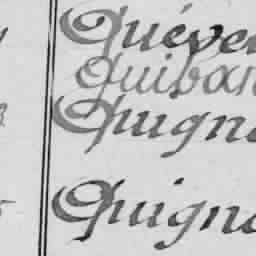 Quéve
Quiban
Quigna
Quigna